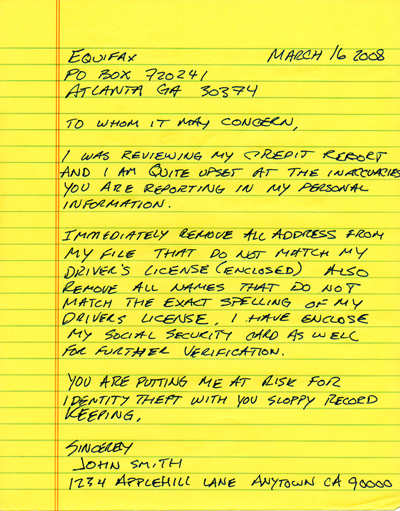 EQUIFAX MARCH 16 2008
PO BOX 720241
ATLANTA GA 30374
TO WHOM IT MAY CONCERN,
I WAS REVIEWING MY CREDIT REPORT
AND I AM QUITE UPSET AT THE INACCURACIES
YOU ARE REPORTING IN MY PERSONAL
INFORMATION.
IMMEDIATELY REMOVE ALL ADDRESS FROM
MY FILE THAT DO NOT MATCH MY
DRIVER'S LICENSE (ENCLOSED) ALSO
REMOVE ALL NAMES THAT DO NOT
MATCH THE EXACT SPELLING OF MY
DRIVERS LICENSE. I HAVE ENCLOSE
MY SOCIAL SECURITY CARD AS WELL
FOR FURTHER VERIFICATION.
YOU ARE PUTTING ME AT RISK FOR
IDENTITY THEFT WITH YOU SLOPPY RECORD
KEEPING.
SINCERELY
JOHN SMITH
1234 APPLEHILL LANE ANYTOWN CA 90000